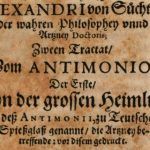 EXANDRI von Sücht
der wahren Philosophey vnnd
Artzney Doctoris,
Zween Tractat/
Vom ANTIMONIO
Der Erste/
on der grossen Heimli
deß ANTIMONII, zu Teutsche
Spießglaß genannt/ die Artzney be-
treffende: vor diesem gedruckt.